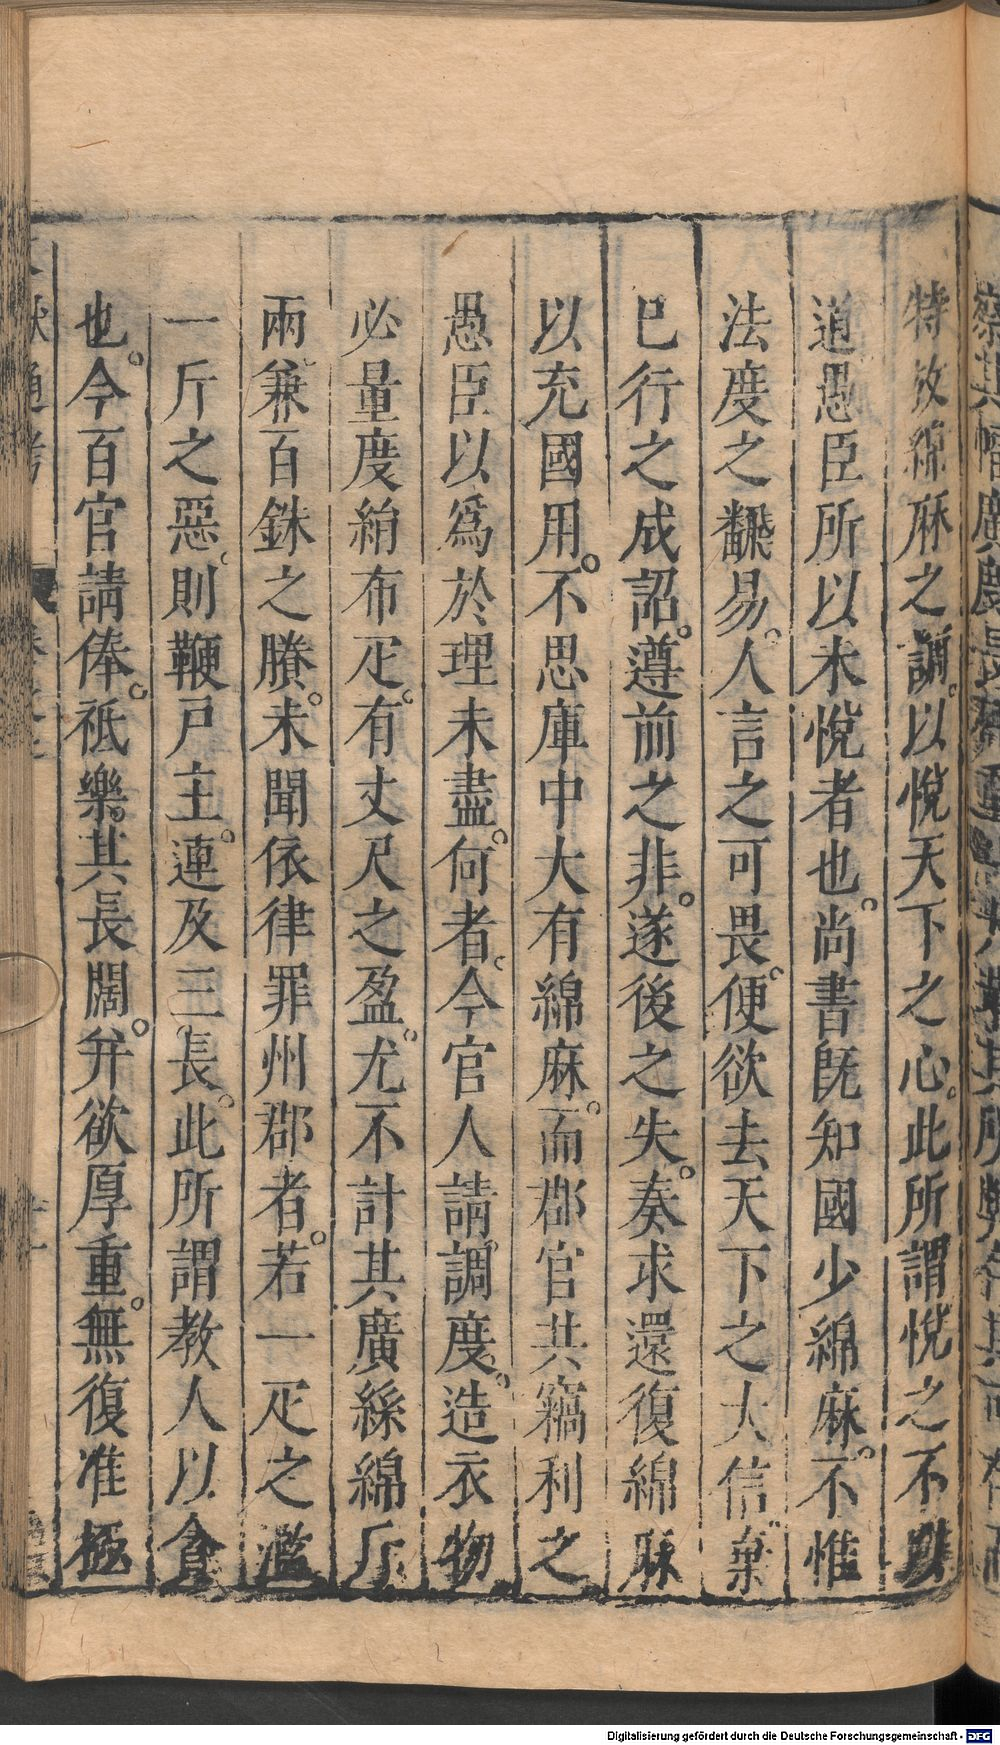 特放綿麻之調以悅天下之心此所謂悅之不以
道愚臣所以未悅者也尚書既知國少綿麻不惟
法度之飜易人言之可畏便欲去天下之大信棄
已行之成詔遵前之非遂後之失奏求還復綿麻
以充國用不思庫中大有綿麻而郡官共竊利之
愚臣以爲於理未盡何者今官人請調度造衣物
必量度絹布疋有丈尺之盈尤不計其廣絲綿斤
兩兼百銖之賸未聞依律罪州郡者若一疋之濫
一斤之惡則鞭戶主連及三長此所謂教人以貪
也今百官請俸祗樂其長闊并欲厚重無復准極
Digitalisierung gefördert durch die Deutsche Forschungsgemeinschaft - DFG